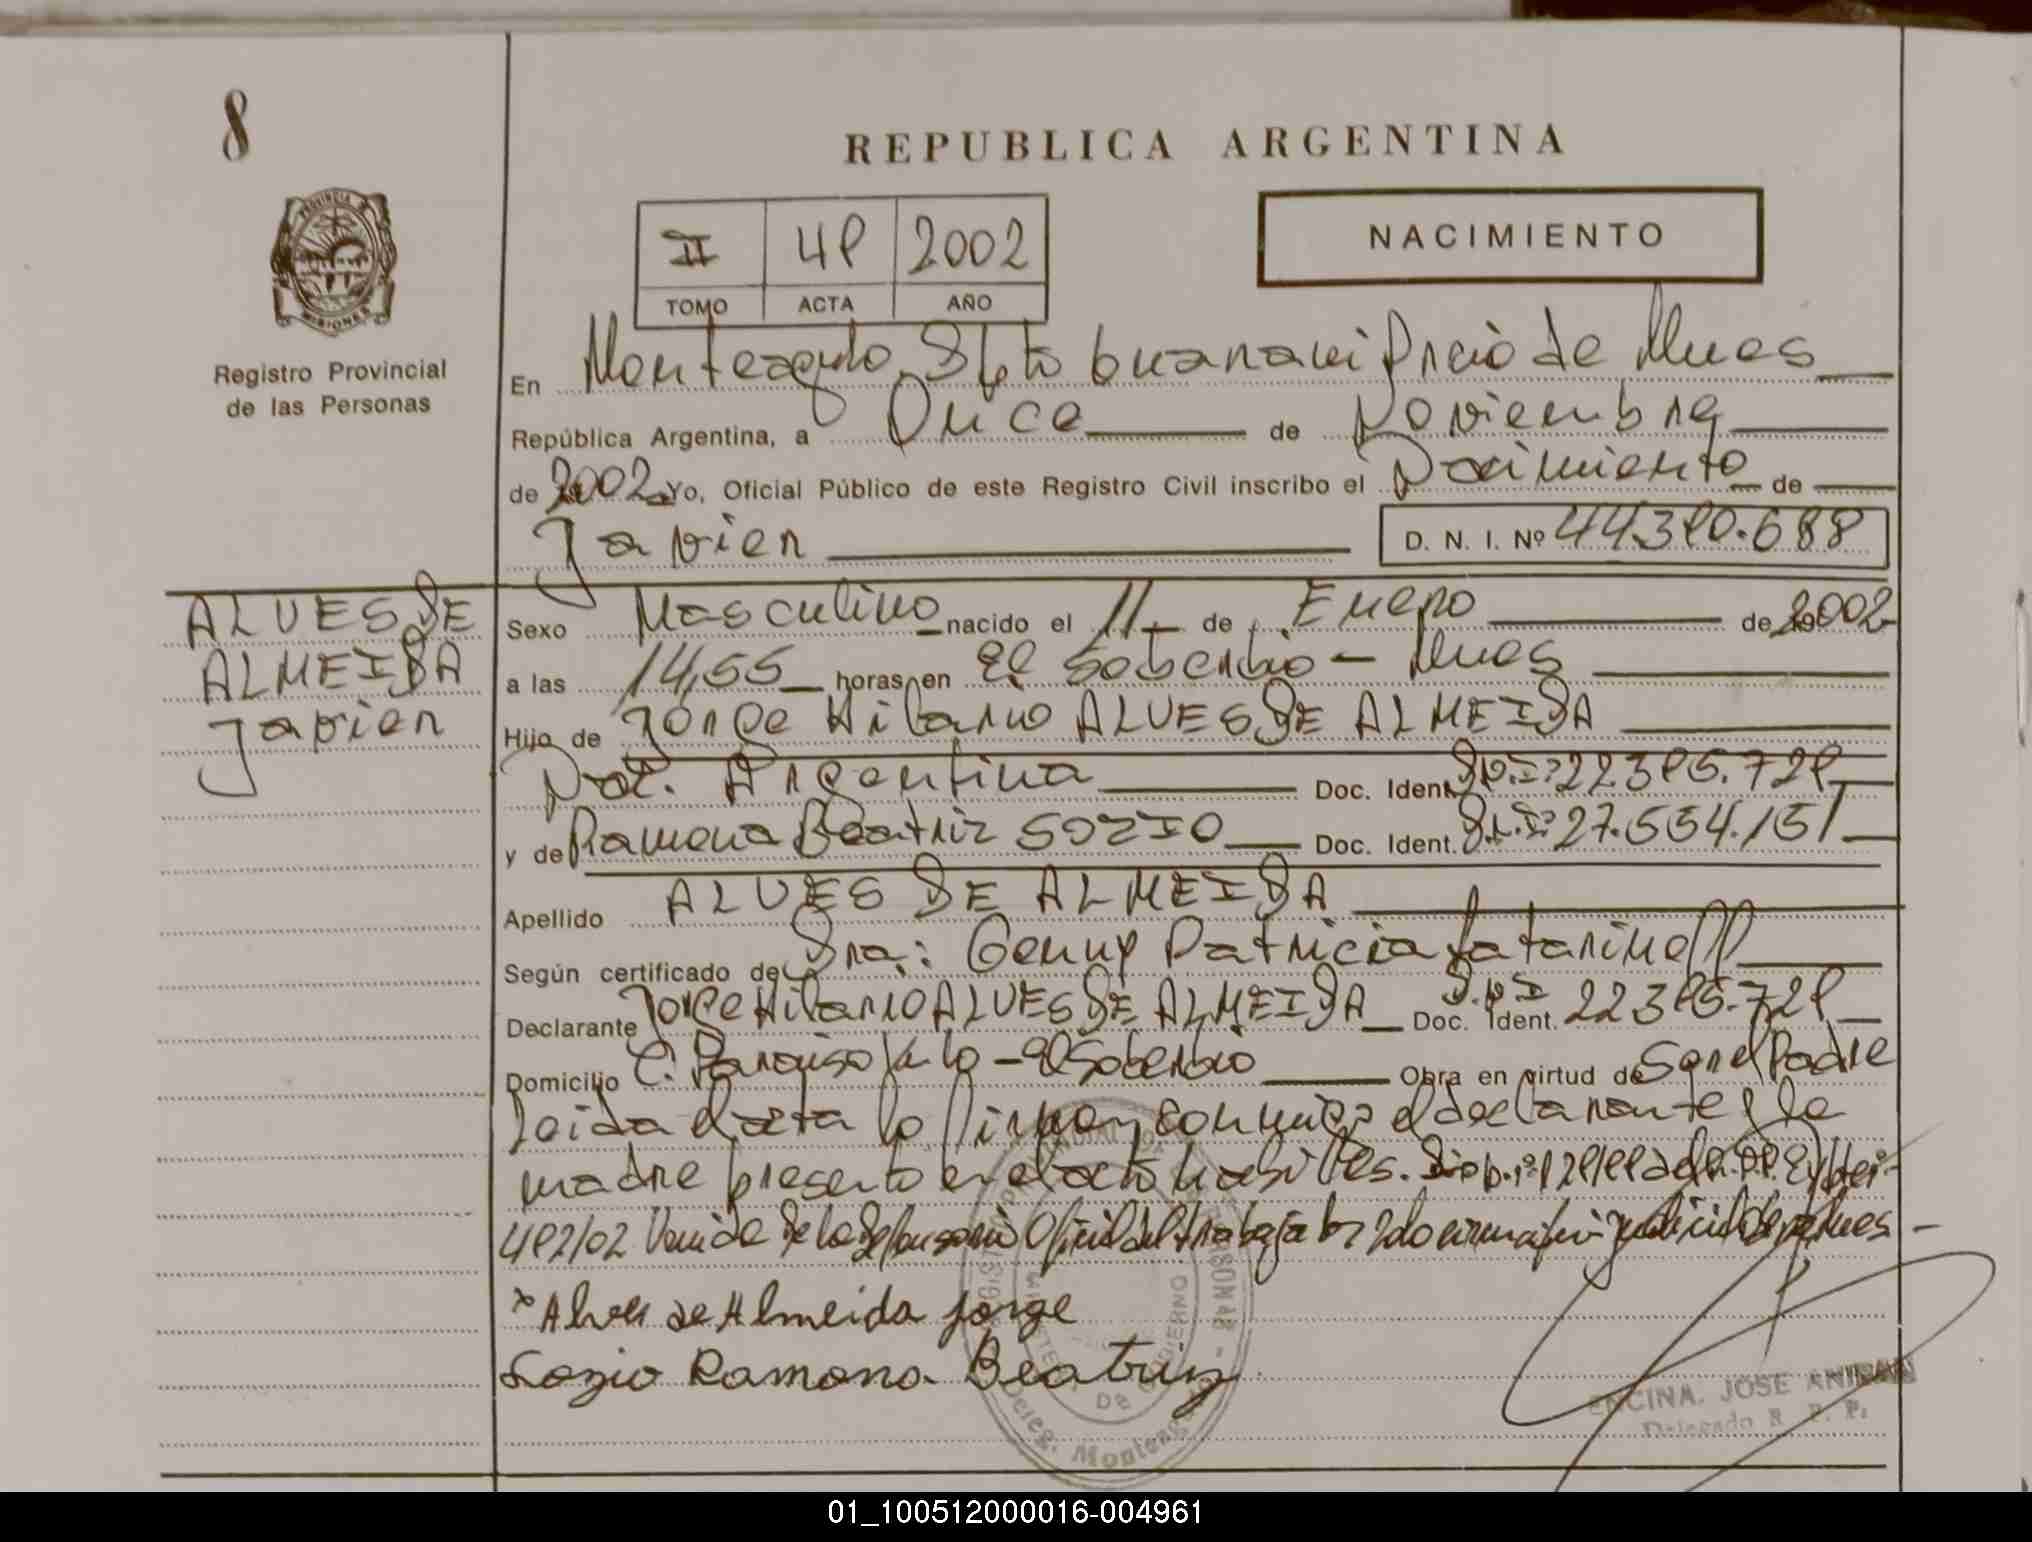 8
REPUBLICA ARGENTINA
PROVINCIA DE
MISIONES
Registro Provincial
de las Personas
II 49 2002
TOMO ACTA AÑO
NACIMIENTO
En Monteagudo. Dpto Guarani Prcia de Mnes
República Argentina, a Once de Noviembre
de 2002 Yo, Oficial Público de este Registro Civil inscribo el Nacimiento de
Javier D. N. I. Nº 44.390.688
ALVES DE
ALMEIDA
Javier
Sexo Masculino nacido el 11 de Enero de 2002
a las 14,55 horas en El Soberbio - Mnes
Hijo de Jorge Hilario ALVES DE ALMEIDA
Nac. Argentina Doc. Ident. D.N.I: 22.395.729
y de Ramona Beatriz SOZIO Doc. Ident. D.N.I: 27.554.151
Apellido ALVES DE ALMEIDA
Según certificado de Dra.: Genny Patricia
Declarante Jorge Hilario ALVES DE ALMEIDA Doc. Ident. D.N.I 22395.729
Domicilio C. Paraiso - El Soberbio Obra en virtud de Ser el Padre
Leida el acta la firman conmigo el declarante y la
madre presente en el acto
492/02 de la Defensoria Oficial del trabajo
Alves de Almeida Jorge
Sozio Ramona Beatriz
MINISTERIO DE GOBIERNO
Deleg. Monteagudo
ENCINA. JOSE
Delegado R. P. P.
01_100512000016-004961